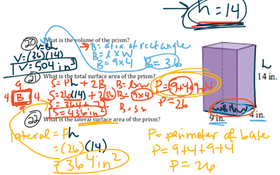 h = 14
20 What is the volume of the prism?
V = Bh
B = area of rectangle
V = (36)(14)
B = l x w
V = 504 in³
B = 9 x 4
B = 36
21 What is the total surface area of the prism?
S = Ph + 2B
B = l x w
P = 9+4+9+4
S = 26(14) + 2(36)
B = 9 x 4
P = 26
S = 364 + 72
B = 36
9
4 B 4
9
h
14 in.
9 in
4 in
22 What is the lateral surface area of the prism?
Lateral = Ph
P = perimeter of base
= (26)(14)
P = 9+4+9+4
= 364 in²
P = 26